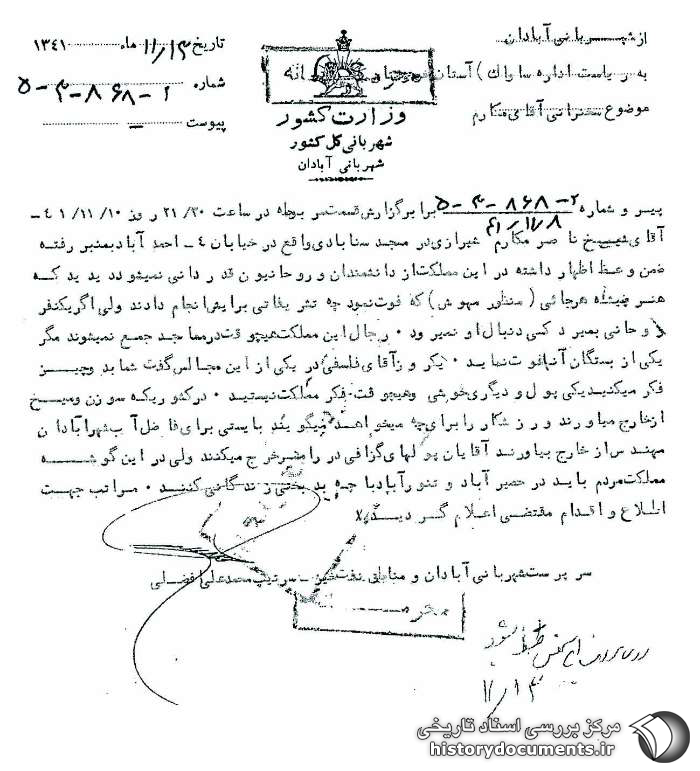 از شهربانی آبادان
به ریاست اداره ساواك ) آستان
موضوع سخنرانی آقای مکارم
محرمانه
وزارت کشور
شهربانی کل کشور
شهربانی آبادان
تاریخ ۱۱/۱۳ ماه ۱۳٤۱
شماره ۲-۸۶۸-۳-۵
پیوست -
پیرو شماره ۲-۸۶۸-۳-۵
۴۱/۱۱/۸
برابر گزارش قسمت مربوطه در ساعت ۲۱/۳۰ روز ۱۰/ ۱۱/ ٤۱ -
آقای شیخ ناصر مکارم شیرازی در مسجد سنابادی واقع در خیابان ٤ - احمد آباد بمنبر رفته
ضمن وعظ اظهار داشته در این مملکت از دانشمندان و روحانیون قدردانی نمیشود دیدید که
هنرپیشه هرجائی ( منظور مهوش ) که فوت نمود چه تشریفاتی برایش انجام دادند ولی اگر یکنفر
روحانی بمیرد کسی دنبال او نمیرود ۰ رجال این مملکت هیچوقت در مساجد جمع نمیشوند مگر
یکی از بستگان آنها فوت نماید ۰ یکروز آقای فلسفی در یکی از این مجالس گفت شما بدو چیز
فکر میکنید یکی پول و دیگری خوشی وهیچوقت فکر مملکت نیستید ۰ در کشوریکه سوزن و میخ
از خارج میاورند ورزشکار را برای چه میخواهد میگویند بایستی برای فاضل آب شهر آبادان
مهندس از خارج بیاورند آقایان پولهای گزافی در رامسر خرج میکنند ولی در این گوشه
مملکت مردم باید در حصیر آباد و تنور آباد با چه بدبختی زندگانی کنند ۰ مراتب جهت
اطلاع و اقدام مقتضی اعلام گردید
سرپرست شهربانی آبادان و مناطق نفت خیز - سرتیپ محمد علی افضلی
محرمانه
ضبط شود
۱۱/۱۳
مرکز بررسی اسناد تاریخی
historydocuments.ir